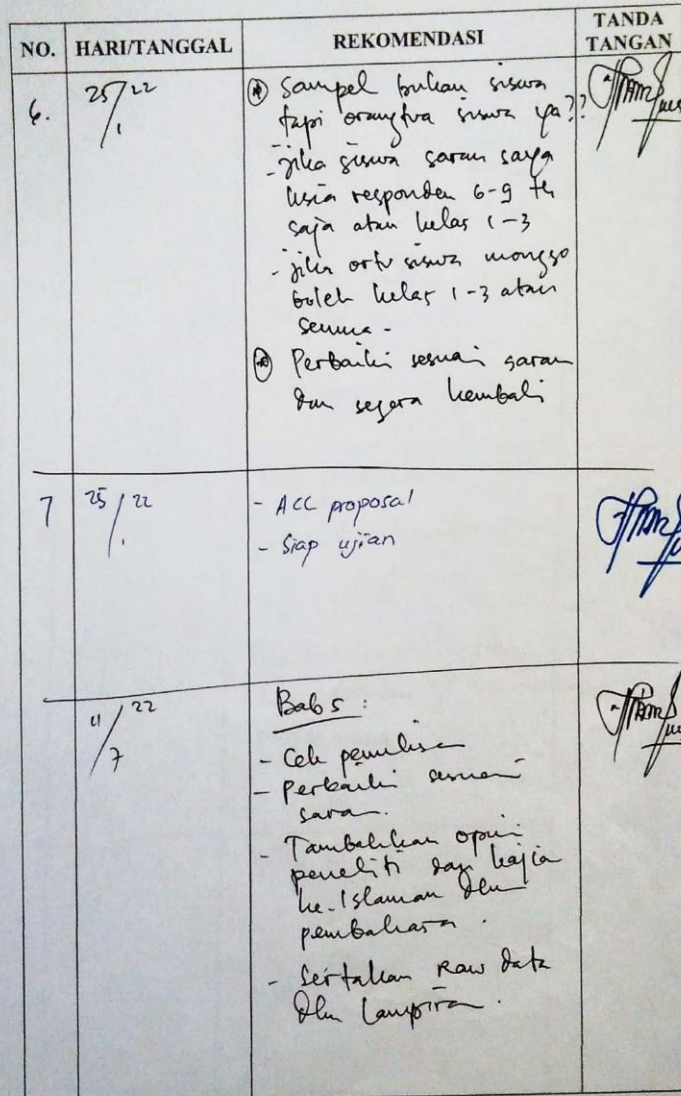 NO. HARI/TANGGAL REKOMENDASI TANDA TANGAN
6. 25/1 22
Sampel bukan siswa
tapi orangtua siswa ya??
- jika siswa saran saya
usia responden 6-9 th
saja atau kelas 1-3
- jika ortu siswa monggo
boleh kelas 1-3 atau
semua -
Perbaiki sesuai saran
dan segera kembali
7 25/1 22
- ACC proposal
- Siap ujian
11/7 22
Bab 5 :
- Cek penulisan
- Perbaiki sesuai
saran.
- Tambahkan opini
peneliti dan kajian
ke-Islaman dlm
pembahasan.
- Sertakan Raw data
dlm Lampiran.